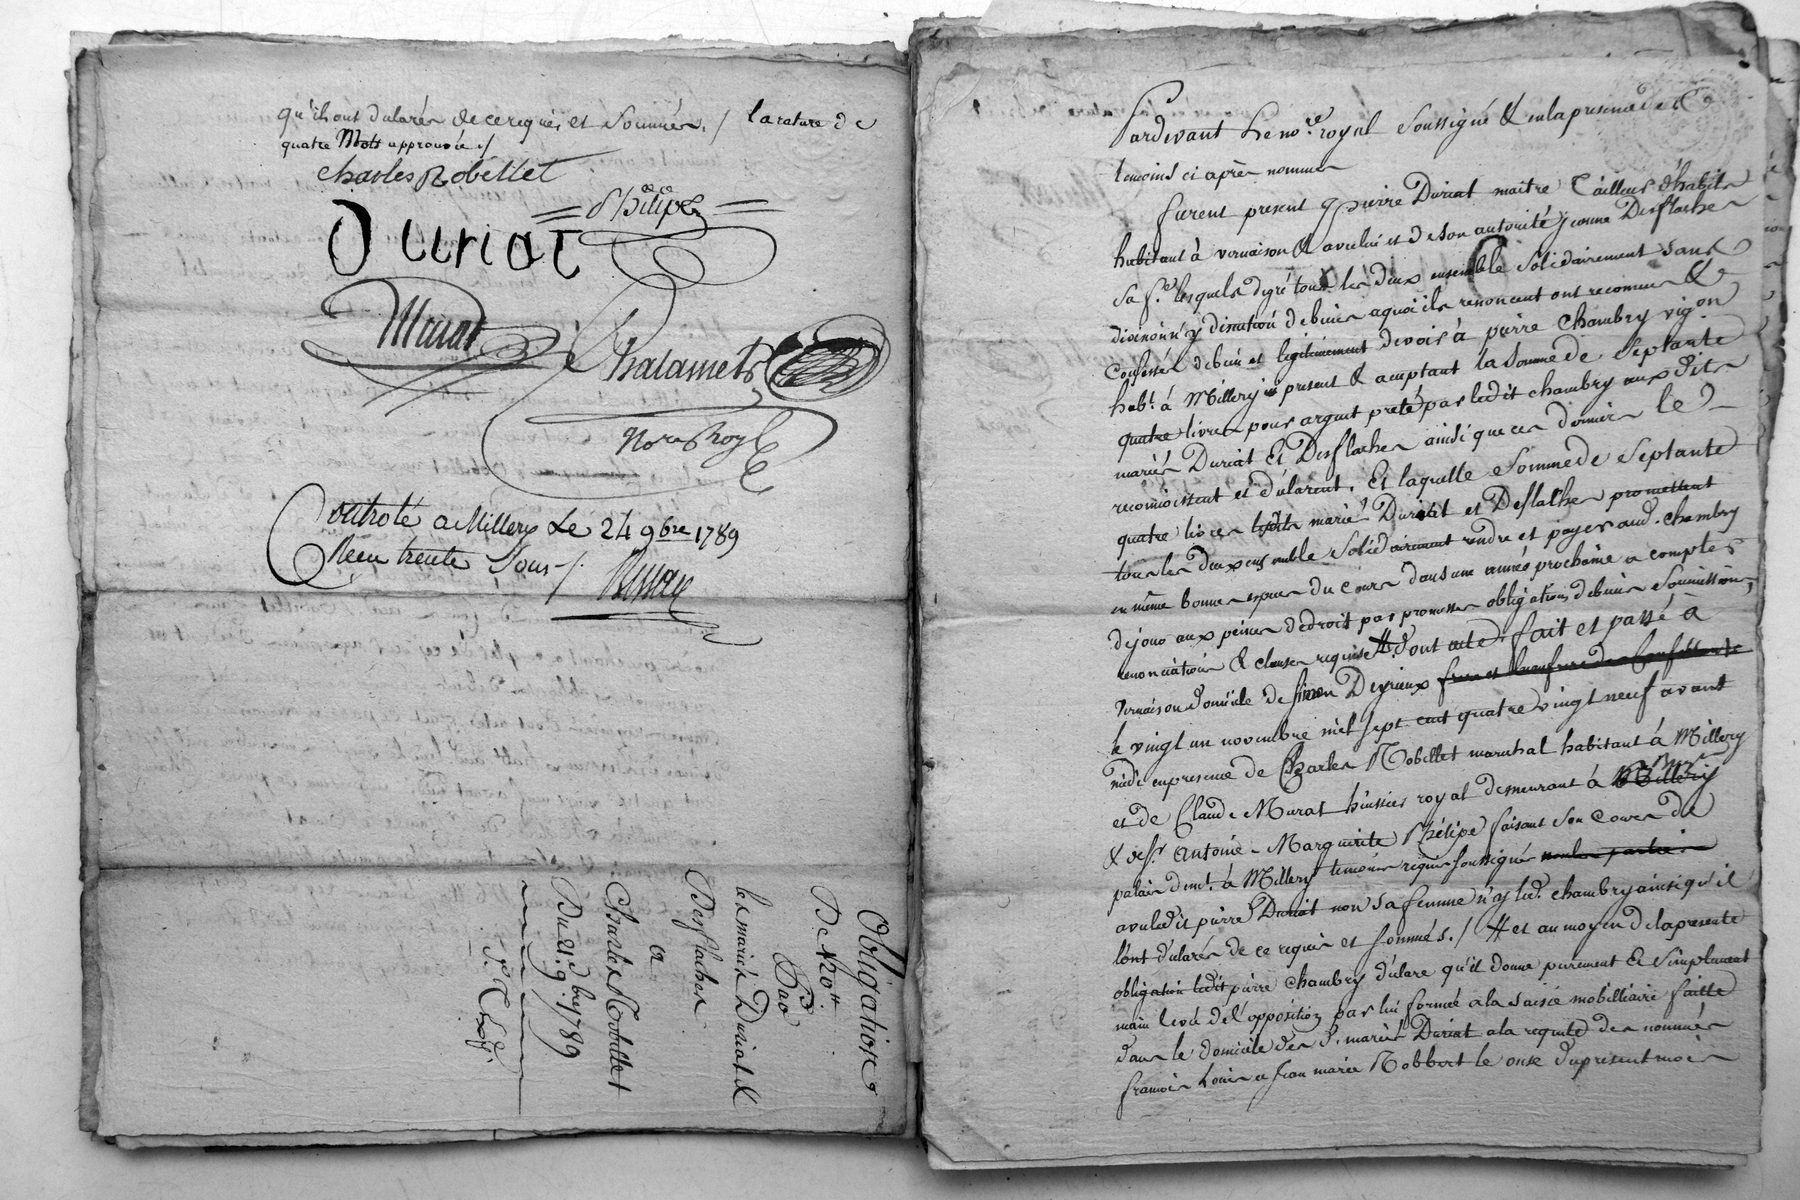 qu'ils ont déclarés de ce requis et sommés ./ la rature de
quatre Mots approuvée ./
charles Robellet
Phélipe
Duriat
Murat
Thalamet
Nore Royl
Controlé a Millery Le 24 9bre 1789
Reçu trente Sous ./.
Obligation
De
Par
les mariés Duriat &
Desflaches
a
Charles Robellet
Du 21 9bre 1789
Pardevant Le nore royal soussigné & en la presence des
temoins ci après nommés
furent present pierre Duriat maitre Tailleur d'habits
habitant à vernaison & avec lui et de son autorité jeanne Desflaches
sa fe lesquels de gré tous les deux ensemble solidairement sans
division n'y discution de biens a quoi ils renoncent ont reconnu &
Confessé de bien et legitimement devoir à pierre Chambry vigon
habt à Millery ici present & acceptant la somme de septante
quatre livres pour argent preté par ledit chambry auxdits
mariés Duriat Et Desflaches ainsi que ces derniers le
reconnoissent et déclarent. Et laquelle somme de septante
quatre livres lesdits mariés Duriat et Desflaches promettent
tous les deux ensemble solidairement rendre et payer aud. chambry
en même bonnes especes du cours dans une année prochaine a compter
de ce jour aux peines de droit par promesses obligation de biens soumissions
renonciation & clauses requises # dont acte fait et passé à
vernaison domicile de simon Deyrieux
le vingt un novembre mil sept cent quatre vingt neuf avant
midi en presence de Charles Robellet marechal habitant à Millery
et de Claude Murat huissier royal demeurant à
& de sr antoine-Marguerite Phélipe faisant son cours de
palais demt à Millery temoins requis soussignés
avec ledit pierre Duriat non sa femme n'y led. chambry ainsi qu'il
l'ont déclarés de ce requis et sommés ./ # et au moyen de la presente
obligation ledit pierre chambry déclare qu'il donne purement Et simplement
main levée de l'opposition par lui formée a la saisie mobilliaire faitte
dans le domicile des d. mariés Duriat a la requete des nommés
francois Louis et jean marie Robbert le onze du present mois